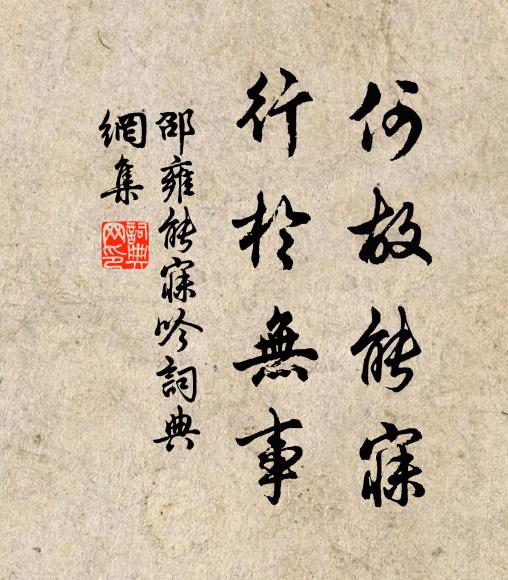 何故能寐
行於無事
邵雍能寐吟詞典
網集
詞典
网印